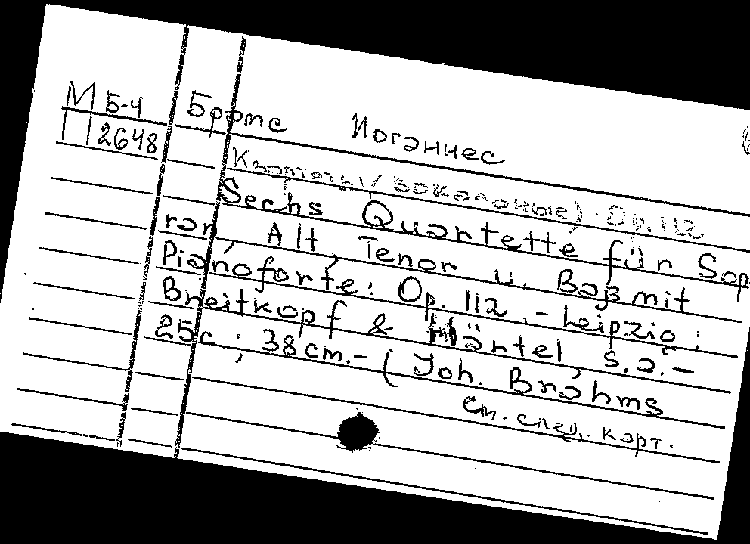 М Б-4 Брамс Иоганнес
П 2648
Квартеты (вокальные). Op. 112
Sechs Quartette für Sop
ran, Alt, Tenor u. Baß mit
Pianoforte: Op. 112. - Leipzig:
Breitkopf & Härtel, s.a. -
25 c.; 38 cm. - (Joh. Brahms
См. след. карт.